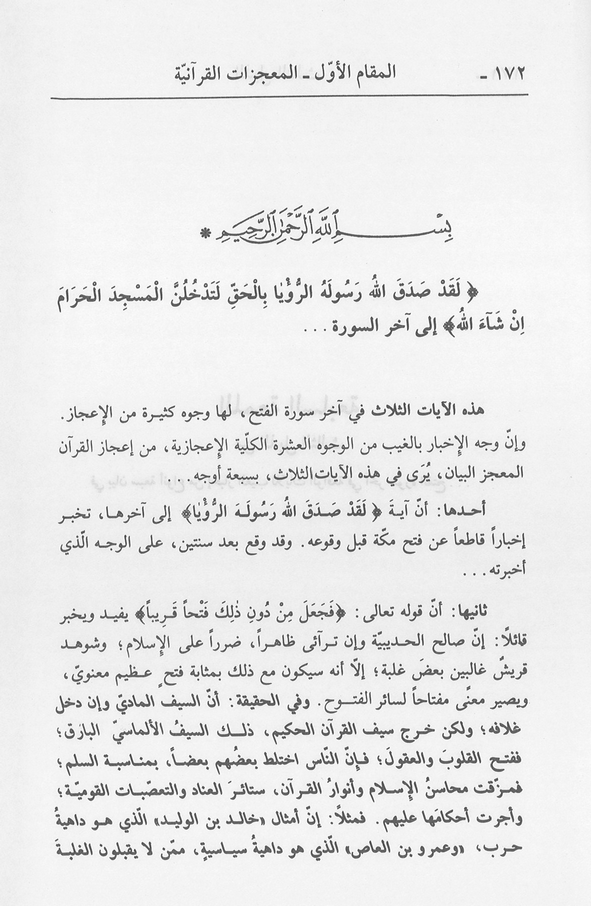 ١٧٢ - المقام الأوّل - المعجزات القرآنيّة
بِسْمِ اللهِ الرَّحْمٰنِ الرَّحِيمِ *
﴿ لَقَدْ صَدَقَ اللهُ رَسُولَهُ الرُّؤْيَا بِالْحَقِّ لَتَدْخُلُنَّ الْمَسْجِدَ الْحَرَامَ
اِنْ شَآءَ اللهُ﴾ إلى آخر السورة . . .
هذه الآيات الثلاث في آخر سورة الفتح، لها وجوه كثيرة من الإعجاز.
وإنّ وجه الإخبار بالغيب من الوجوه العشرة الكلّية الإعجازية، من إعجاز القرآن
المعجز البيان، يُرَى في هذه الآيات الثلاث، بسبعة أوجه. . .
أحدها: أنّ آيةَ ﴿ لَقَدْ صَدَقَ اللهُ رَسُولَهُ الرُّؤْيَا﴾ إلى آخرها، تخبر
إخباراً قاطعاً عن فتح مكّة قبل وقوعه. وقد وقع بعد سنتين، على الوجه الّذي
أخبرته . . .
ثانيها: أنّ قوله تعالى: ﴿فَجَعَلَ مِنْ دُونِ ذٰلِكَ فَتْحاً قَرِيباً﴾ يفيد ويخبر
قائلًا: إنّ صالح الحديبيّة وإن تراآى ظاهراً، ضرراً على الإسلام؛ وشوهد
قريشٌ غالبين بعضَ غلبة؛ إلاّ أنه سيكون مع ذلك بمثابة فتحٍ عظيم معنويّ،
ويصير معنًى مفتاحاً لسائر الفتوح. وفي الحقيقة: أنّ السيف الماديّ وإن دخل
غلافه؛ ولكن خرج سيف القرآن الحكيم، ذلك السيفُ الألماسيّ البازق؛
ففتح القلوبَ والعقولَ؛ فإنّ النّاس اختلط بعضُهم بعضاً، بمناسبة السلم؛
فمزّقت محاسنُ الإسلام وأنوارُ القرآن، ستائرَ العناد والتعصّبات القوميّة؛
وأجرت أحكامَها عليهم. فمثلًا: إنّ أمثال «خالد بن الوليد» الّذي هو داهيةُ
حرب، «وعمرو بن العاص» الّذي هو داهيةُ سياسيةٍ، ممّن لا يقبلون الغلبةَ